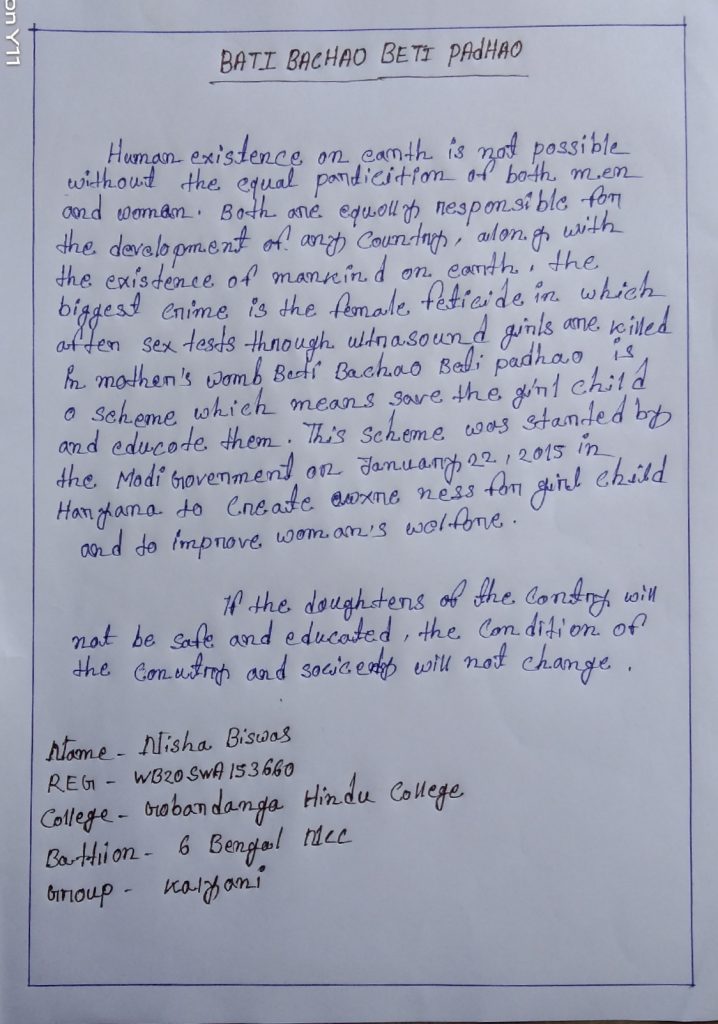 on Y11
BATI BACHAO BETI PADHAO
Human existence on earth is not possible
without the equal pardicition of both men
and woman. Both are equolly responsible for
the development of any Country, along with
the existence of mankind on earth, the
biggest crime is the female feticide in which
after sex tests through ultrasound girls are killed
In mother's womb Beti Bachao Beti padhao is
a scheme which means save the girl child
and educote them. This scheme was started by
the Modi Government on January 22, 2015 in
Haryana to Create ness for girl child
and to improve woman's welfore.
If the doughsters of the Contry will
not be safe and educated, the Condition of
the Conutry and will not change.
Name - Nisha Biswas
REG - WB20SWA153660
College - Gobardanga Hindu College
Battlion - 6 Bengal NCC
Group - Kalyani